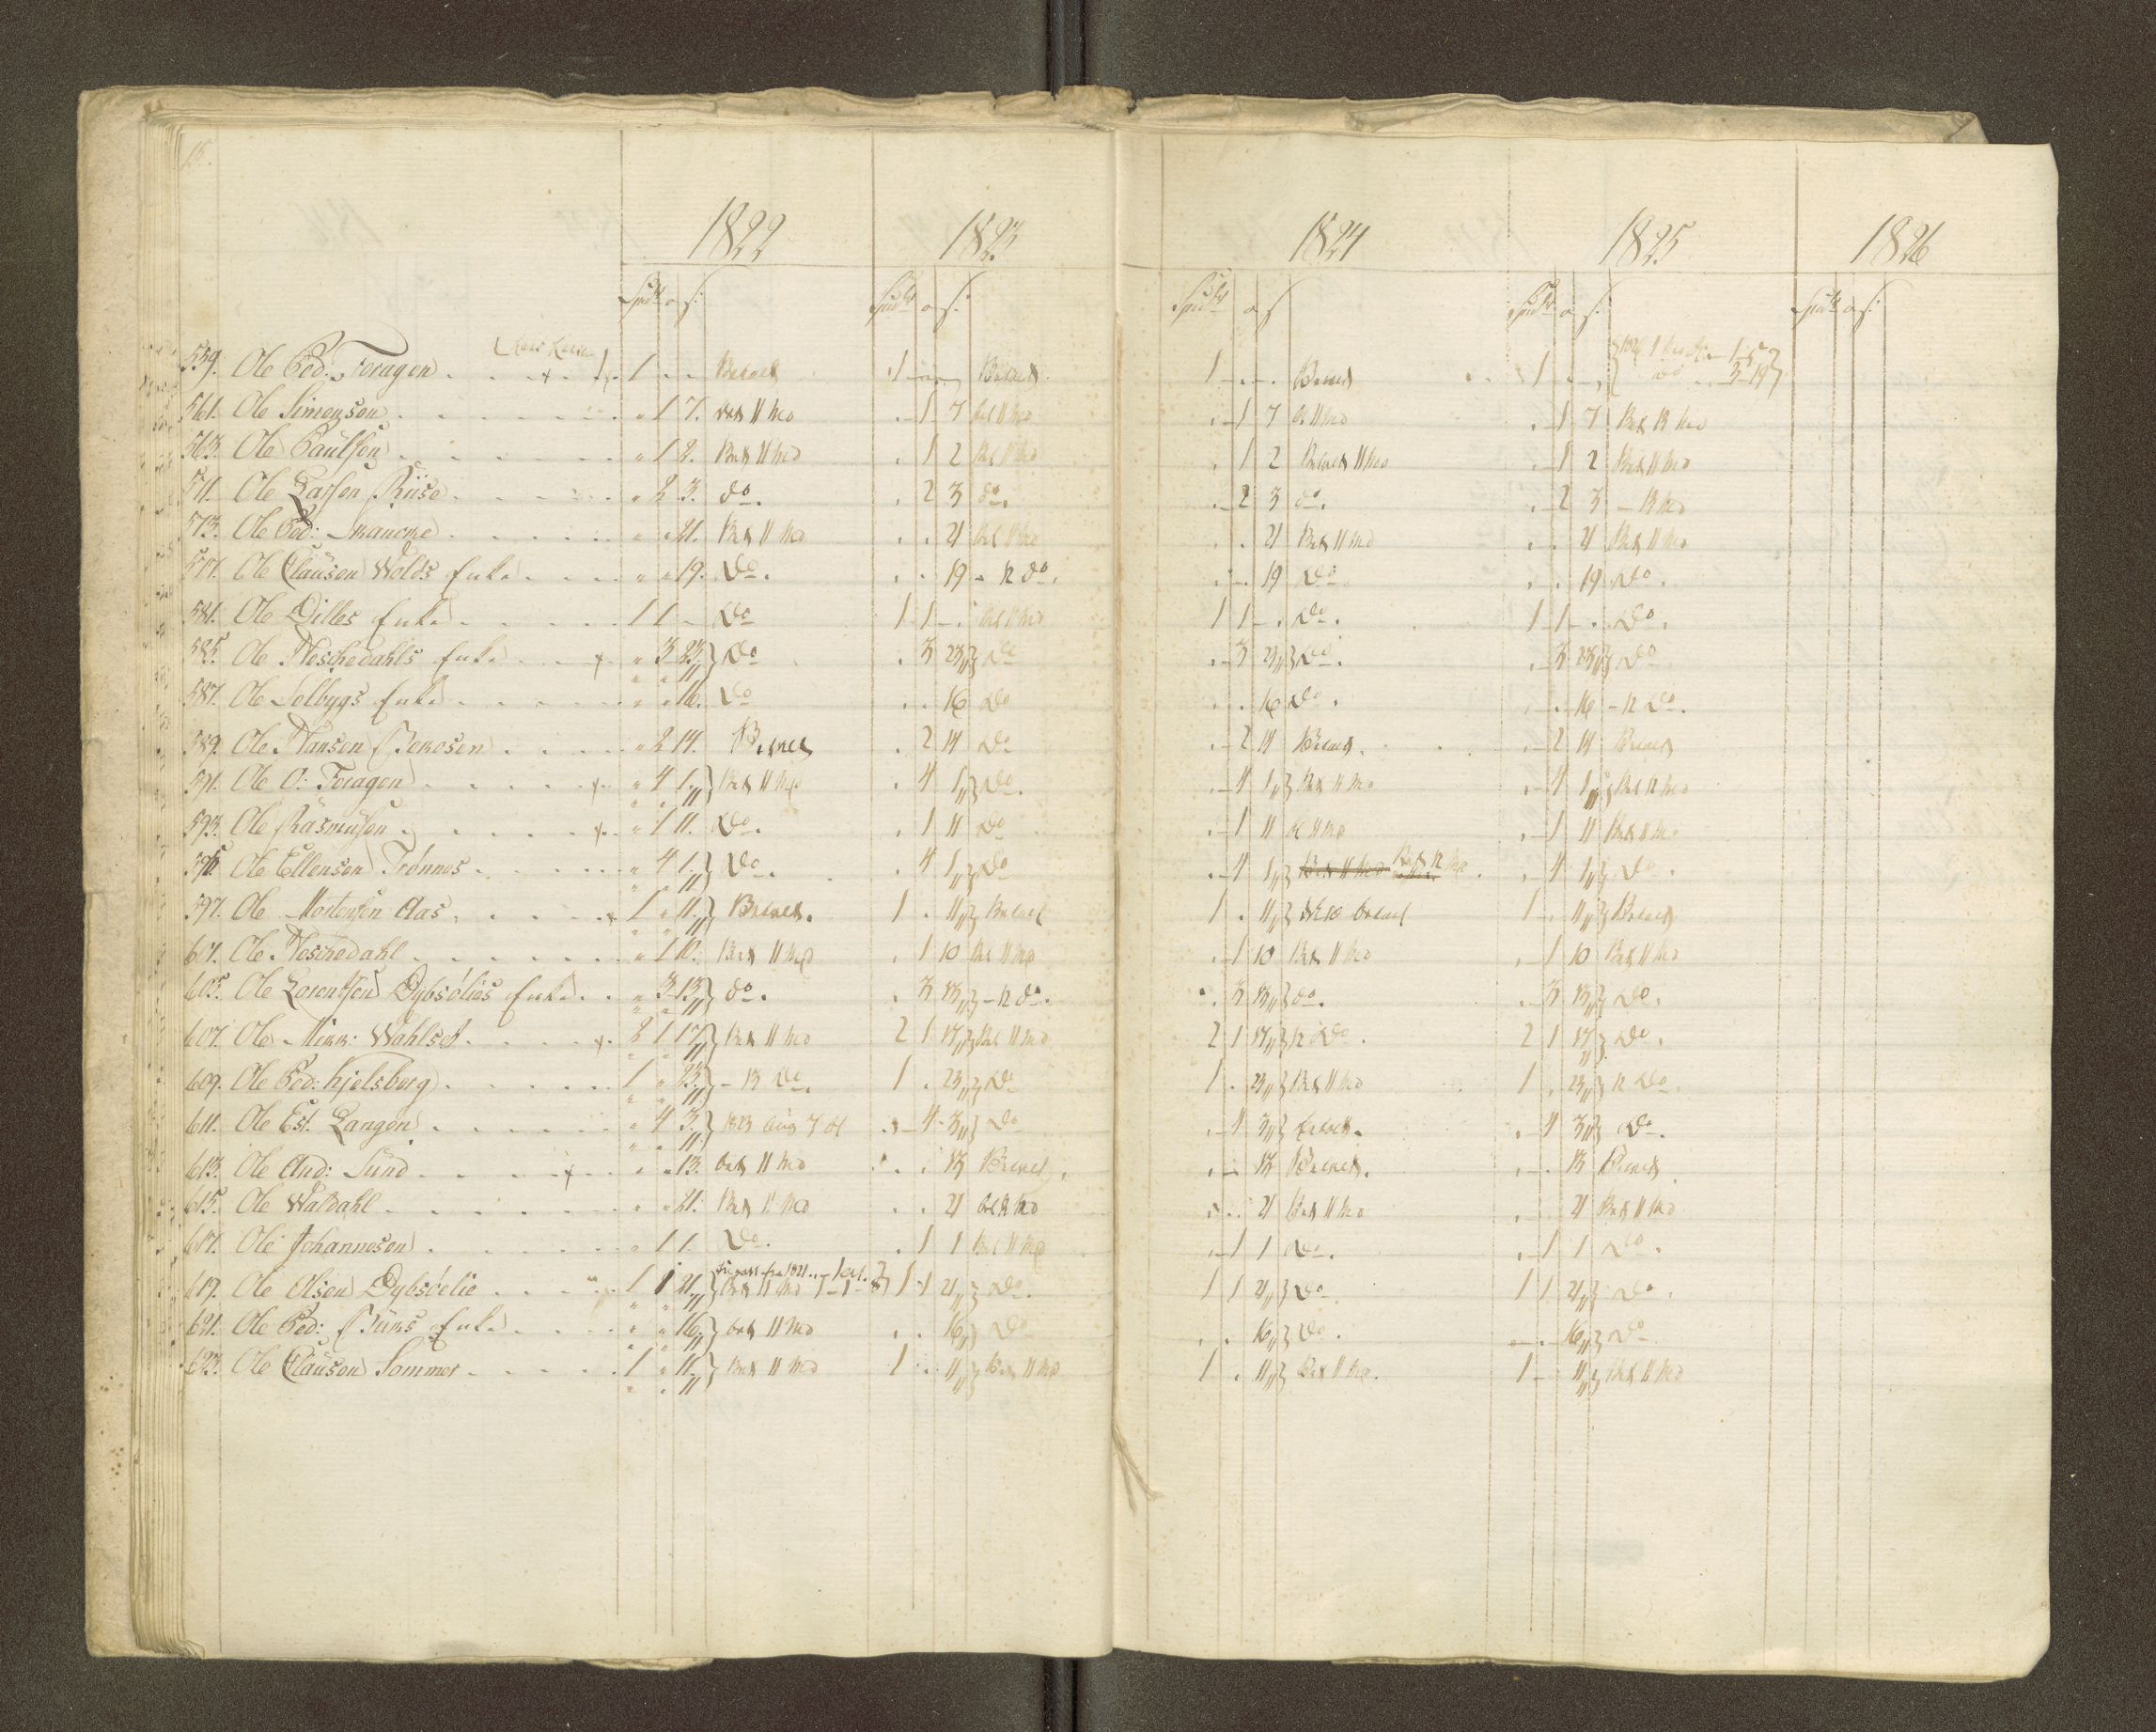 16.
1822 1823 1824 1825 1826
Spd o s: Spd o s: Spd o s Spd o s: Spd o s:
559. Ole Ped: Feragen . . . 1 - - Betalt 1 - - Betalt 1 - - Betalt 1 - -
561. Ole Simonsen . . . " 1 7. Bet 11 Md . 1 7 bet 11 Md . 1 7 b 11 Md . 1 7 Bet 13 Md
563. Ole Paulsen . . . " 1 2. Bet 11 Md . 1 2 Bet 11 Md . 1 2 Betalt 11 Md . 1 2 Bet 11 Md
571. Ole Larsen Riise . . . " 2 3. do. . 2 3 do. . 2 3 do. . 2 3 - 13 Md
573. Ole Ped: Skancke . . . " " 21. Bet 11 Md . . 21 bet 11 Md . . 21 Bet 11 Md . . 21 Bet 11 Md
577. Ole Clausen Wolds Enke . . . " " 19. Do. . . 19 - 12 do. . . 19 Do . . 19 Do.
581. Ole Dilles Enke . . . 1 1 - Do 1 1 - bet 11 Md 1 1 - . Do. 1 1 - . Do.
585. Ole Neschedahls Enke . . . " 3 23 Do . 3 23 Do . 3 23 Do. . 3 23 Do
587. Ole Selbygs Enke . . . " " 16. Do . . 16 Do . . 16 Do. . . 16 - 12 Do.
589. Ole Hansen . . . " 2 14. Betalt . 2 14 Do . 2 14 Betalt. . 2 14 Betalt
591. Ole O: Feragen . . . " 4 1. Bet 11 Md . 4 1 Do. . 4 1 Bet 11 Md . 4 1 Bet 12 Md
593. Ole Rasmusen . . . " 1 11. Do. . 1 11 Do . 1 11 b 11 Md . 1 11 Bet 11 Md
595 Ole Ellensen Trønnes . . . " 4 1. Do. . 4 1 Do . 4 1 Bet 11 Md Bet 12 Md . 4 1 Do.
597. Ole Mortensen Aas . . . 1 " 11. Betalt. 1 . 11 Betalt 1 . 11 betalt 1 . 11 Betalt
601. Ole Neschedahl . . . " 1 10. Bet 11 Md . 1 10 Bet 11 Md . 1 10 Bet 11 Md . 1 10 Bet 11 Md
605. Ole Lorentsen Dybsölies Enke . . " 3 13 do. . 3 13 - 12 do. . 3 13 do. . 3 13 Do.
607. Ole Mikk: Wahlset . . . 2 1 17 Bet 11 Md 2 1 17 Bet 11 Md 2 1 17 12 Do. 2 1 17 Do.
609. Ole Ped: Hjelsberg . . . 1 " 23. - 13 Do. 1 . 23 Do 1 . 23 Bet 11 Md 1 . 23 12 Do.
611. Ole Est. Langen . . . " 4 3. 1823 Aug 7 . 4 3 Do . 4 3 betalt. . 4 3 Do.
613. Ole And: Sund . . . " " 13. bet 11 Md . . 13 Betalt, . . 13 Betalt. . . 13 Betalt
615. Ole Waldahl . . . " " 21. Bet 11 Md . . 21 bet 12 Md . . 21 Bet 11 Md . . 21 Bet 11 Md
617. Ole Johannesen . . . " 1 1. Do. . 1 1 Bet 11 Md . 1 1 Do. . 1 1 Do.
619. Ole Olsen Dybsöelie . . . 1 1 21. Bet 11 Md 1 1 21 Do. 1 1 21 Do 1 1 21 Do.
621. Ole Ped: Enke . . . " " 16. bet 11 Md . . 16 Do . . 16 Do. . . 16 Do
623. Ole Clausen Sommer . . . 1 " 11. Bet 11 Md 1 . 11 Bet 11 Md 1 . 11 Bet 11 Md. 1 - 11 Bet 11 Md